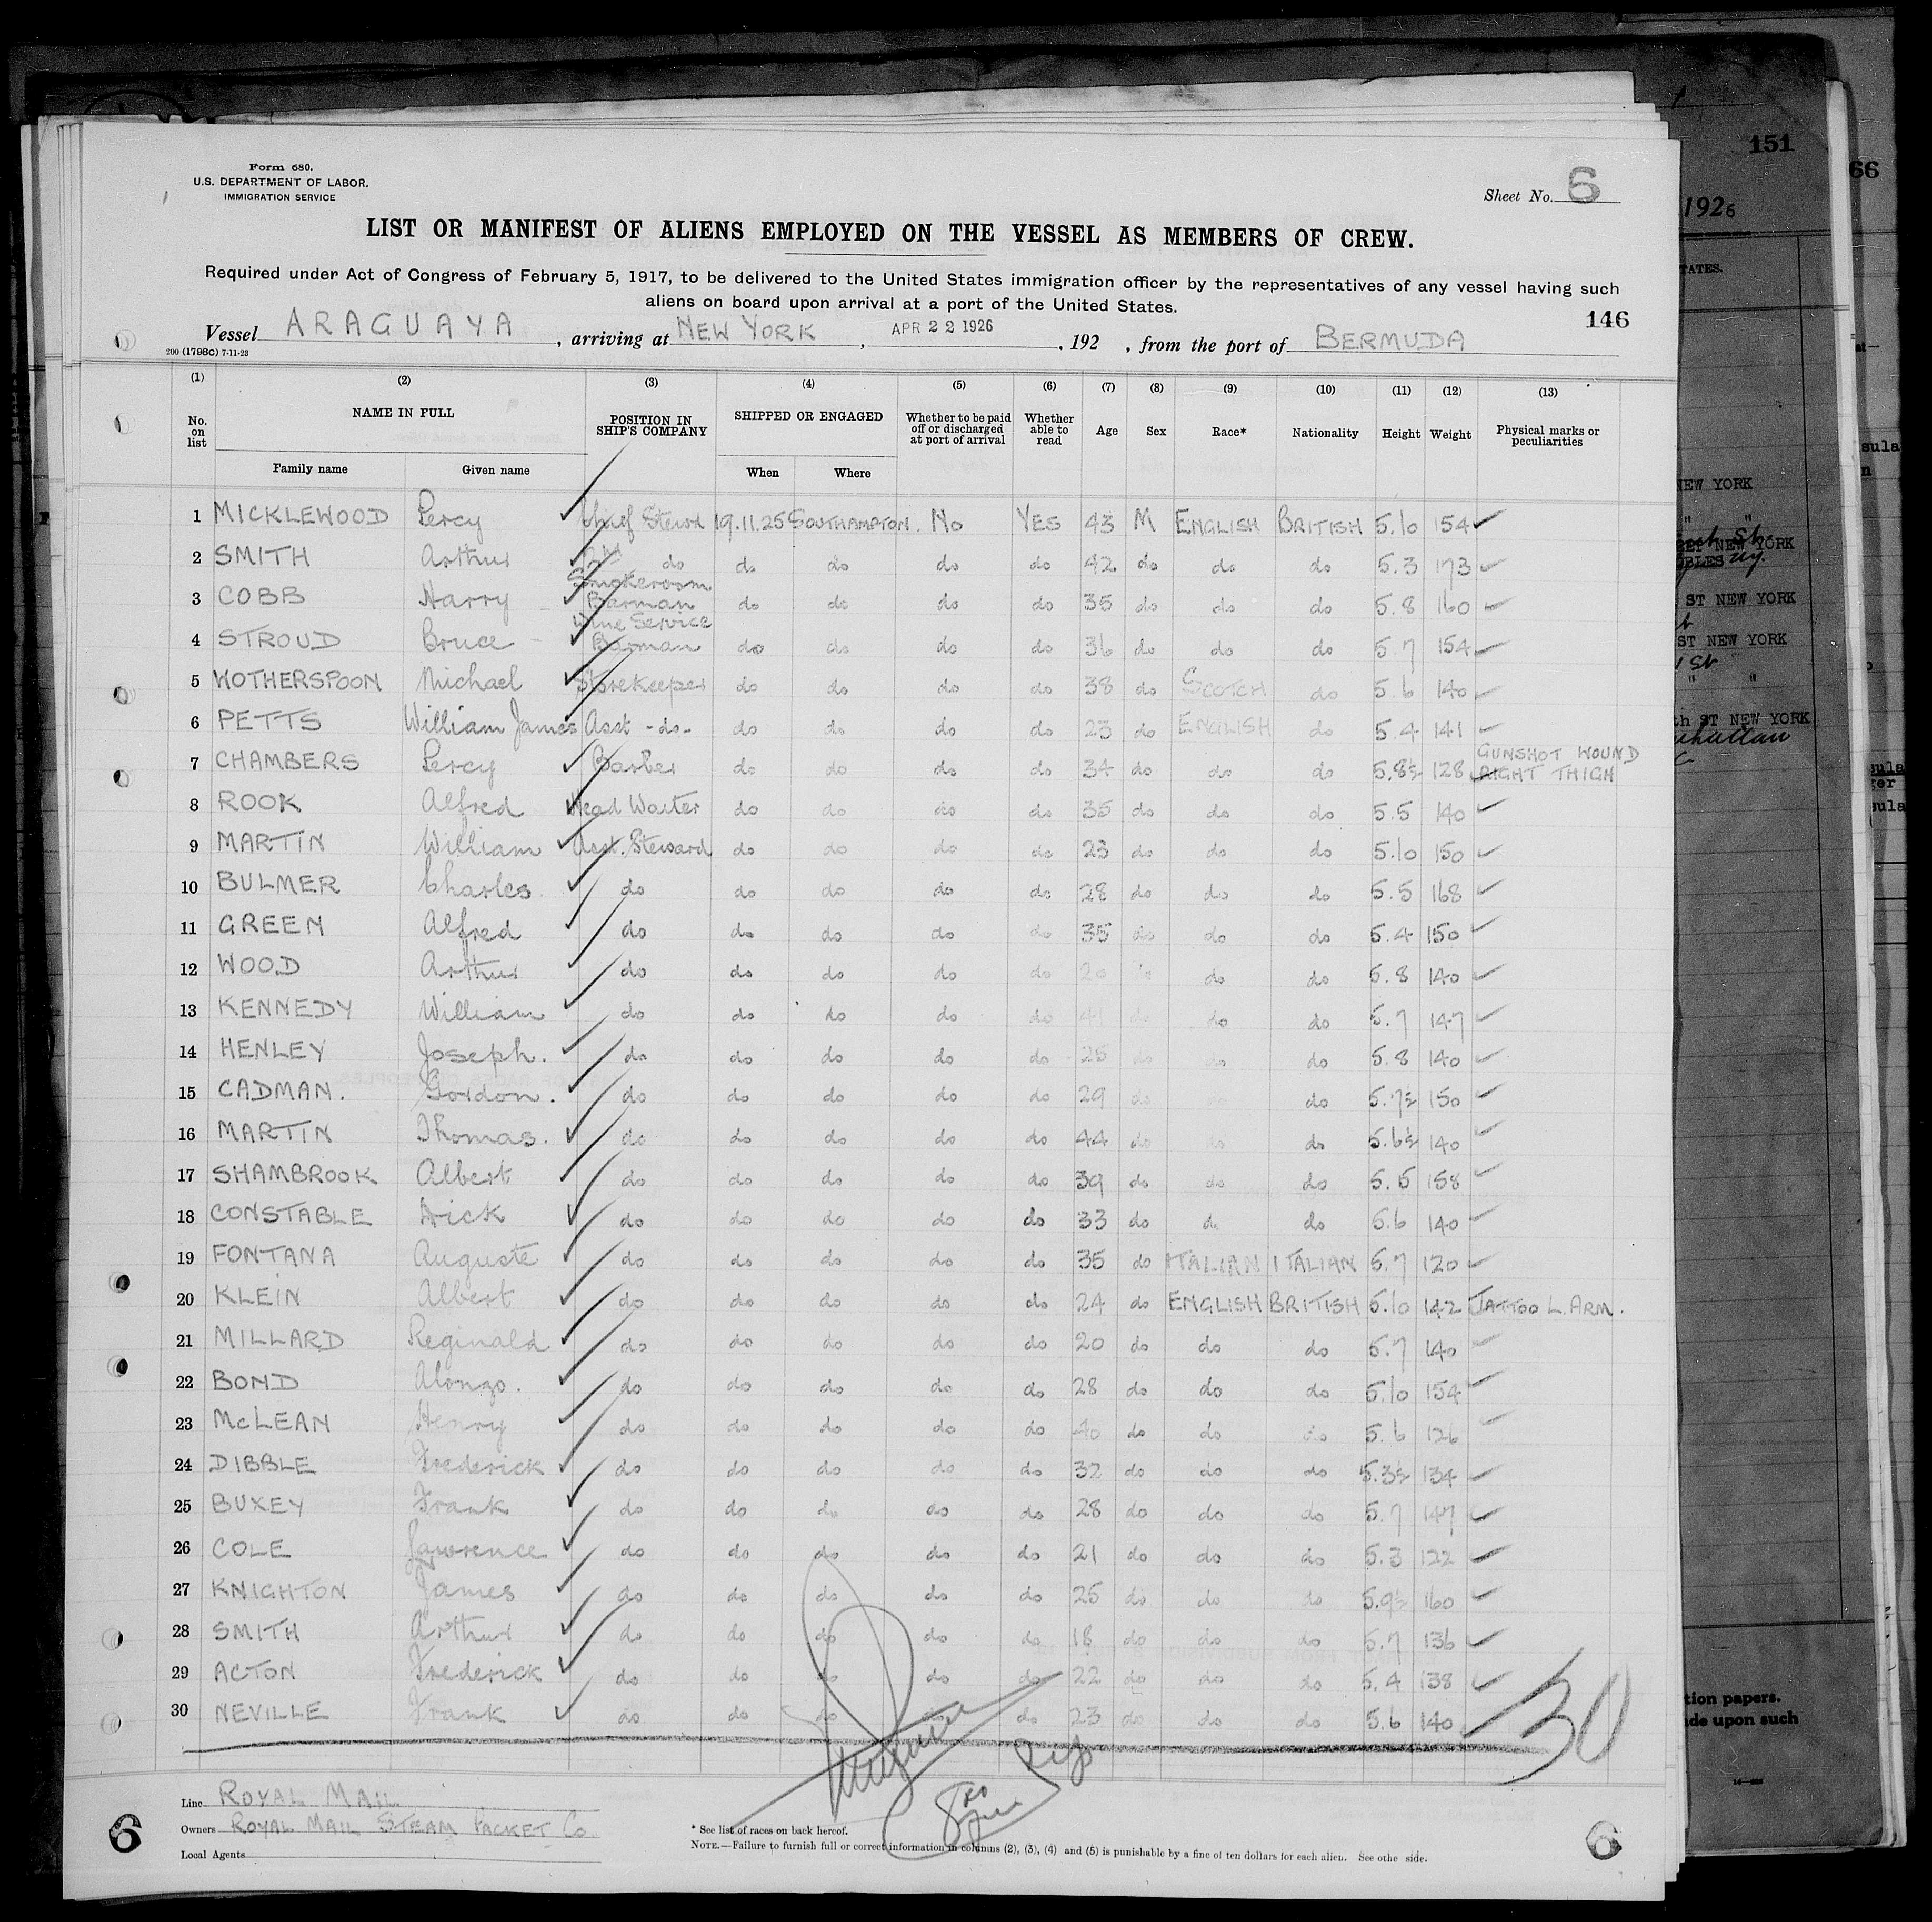 Form 680.
U.S. DEPARTMENT OF LABOR.
IMMIGRATION SERVICE
Sheet No. 6
LIST OR MANIFEST OF ALIENS EMPLOYED ON THE VESSEL AS MEMBERS OF CREW.
Required under Act of Congress of February 5, 1917, to be delivered to the United States immigration officer by the representatives of any vessel having such
aliens on board upon arrival at a port of the United States.
146
Vessel ARAGUAYA, arriving at NEW YORK, APR 22 1926, 192 , from the port of BERMUDA
200 (1798C) 7-11-23
(1) (2) (3) (4) (5) (6) (7) (8) (9) (10) (11) (12) (13)
No. on list NAME IN FULL POSITION IN SHIP'S COMPANY SHIPPED OR ENGAGED Whether to be paid off or discharged at port of arrival Whether able to read Age Sex Race* Nationality Height Weight Physical marks or peculiarities
Family name Given name When Where
1 MICKLEWOOD Percy Chief Stewd 19.11.25 SOUTHAMPTON. No YES 43 M ENGLISH BRITISH 5.10 154
2 SMITH Arthur 2nd do do do do do 42 do do do 5.3 173
3 COBB Harry Smokeroom Barman do do do do 35 do do do 5.8 160
4 STROUD Bruce Wine Service Barman do do do do 36 do do do 5.7 154
5 WOTHERSPOON Michael Storekeeper do do do do 38 do SCOTCH do 5.6 140
6 PETTS William James Asst -do- do do do do 23 do ENGLISH do 5.4 141
7 CHAMBERS Percy Barber do do do do 34 do do do 5.8½ 128 GUNSHOT WOUND RIGHT THIGH
8 ROOK Alfred Head Waiter do do do do 35 do do do 5.5 140
9 MARTIN William Asst. Steward do do do do 23 do do do 5.10 150
10 BULMER Charles. do do do do do 28 do do do 5.5 168
11 GREEN Alfred do do do do do 35 do do do 5.4 150
12 WOOD Arthur do do do do do 20 do do do 5.8 140
13 KENNEDY William do do do do do do do do 5.7 147
14 HENLEY Joseph. do do do do do 25 do do do 5.8 140
15 CADMAN. Gordon. do do do do do 29 do do 5.7½ 150
16 MARTIN Thomas. do do do do do 44 do do do 5.6½ 140
17 SHAMBROOK Albert do do do do do 39 do do do 5.5 158
18 CONSTABLE Dick do do do do do 33 do do do 5.6 140
19 FONTANA Auguste do do do do do 35 do ITALIAN ITALIAN 5.7 120
20 KLEIN Albert do do do do do 24 do ENGLISH BRITISH 5.10 142 TATTOO L. ARM.
21 MILLARD Reginald do do do do do 20 do do do 5.7 140
22 BOND Alonzo. do do do do do 28 do do do 5.10 154
23 McLEAN Henry do do do do do 40 do do do 5.6 126
24 DIBBLE Frederick do do do do do 32 do do do 5.3½ 134
25 BUXEY Frank do do do do do 28 do do do 5.7 147
26 COLE Lawrence do do do do do 21 do do do 5.3 122
27 KNIGHTON James do do do do do 25 do do do 5.9½ 160
28 SMITH Arthur do do do do do 18 do do do 5.7 136
29 ACTON Frederick do do do do do 22 do do do 5.4 138
30 NEVILLE Frank do do do do do 23 do do do 5.6 140
30
Line ROYAL MAIL
Owners ROYAL MAIL STEAM PACKET Co.
Local Agents
* See list of races on back hereof.
NOTE.—Failure to furnish full or correct information in columns (2), (3), (4) and (5) is punishable by a fine of ten dollars for each alien. See othe side.
6
6
151
66
1926
TATES.
NEW YORK
NEW YORK
ST NEW YORK
ST NEW YORK
th ST NEW YORK
tion papers.
de upon such